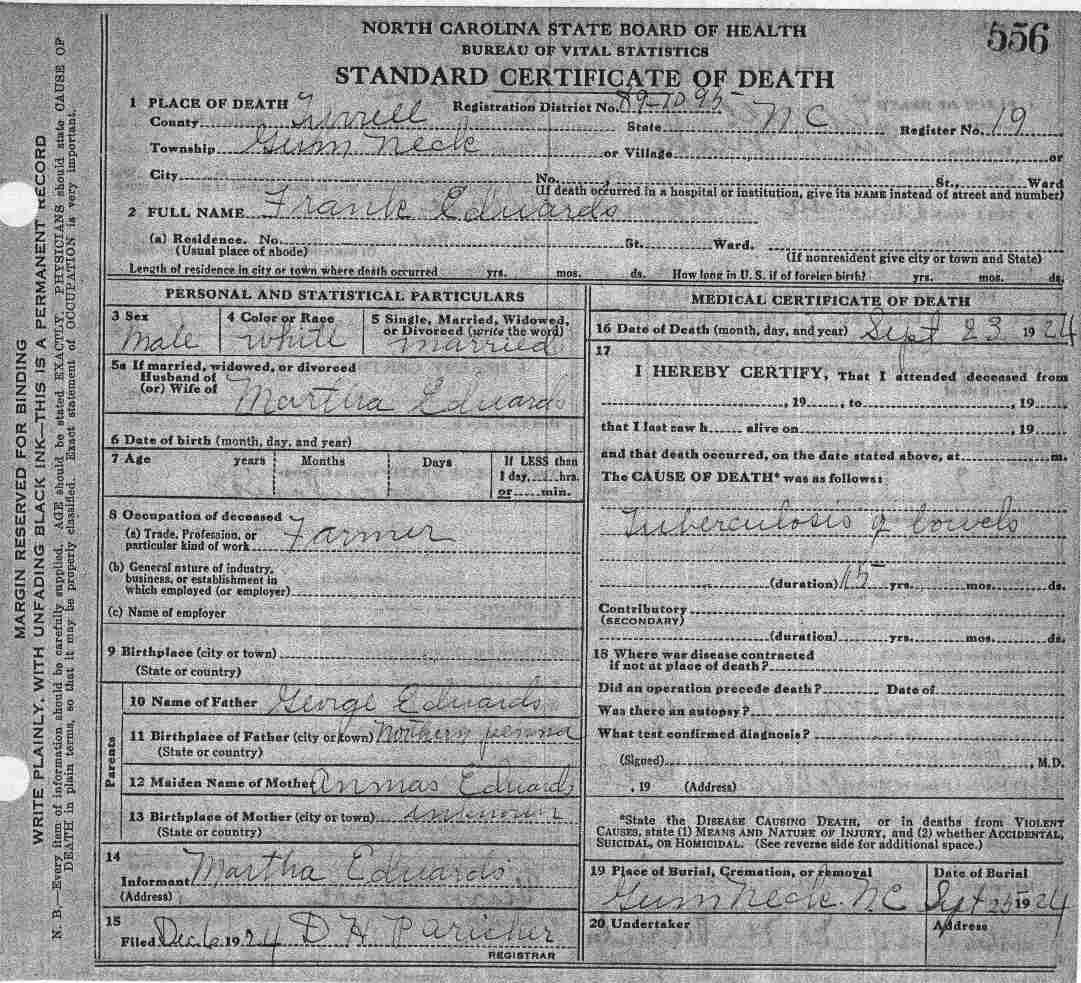 NORTH CAROLINA STATE BOARD OF HEALTH
BUREAU OF VITAL STATISTICS
556
STANDARD CERTIFICATE OF DEATH
1 PLACE OF DEATH
Registration District No. 89-1095
County Tyrrell State NC Register No. 19
Township Gum Neck or Village or
City No. St., Ward
(If death occurred in a hospital or institution, give its NAME instead of street and number)
2 FULL NAME Frank Edwards
(a) Residence. No. St. Ward.
(Usual place of abode) (If nonresident give city or town and State)
Length of residence in city or town where death occurred yrs. mos. ds. How long in U. S. if of foreign birth? yrs. mos. ds.
PERSONAL AND STATISTICAL PARTICULARS
3 Sex 4 Color or Race 5 Single, Married, Widowed,
or Divorced (write the word)
Male white married
5a If married, widowed, or divorced
Husband of
(or) Wife of Martha Edwards
6 Date of birth (month, day, and year)
7 Age years Months Days If LESS than
1 day, hrs.
or min.
8 Occupation of deceased
(a) Trade, Profession, or
particular kind of work Farmer
(b) General nature of industry,
business, or establishment in
which employed (or employer)
(c) Name of employer
9 Birthplace (city or town)
(State or country)
Parents
10 Name of Father George Edwards
11 Birthplace of Father (city or town) Northern
(State or country)
12 Maiden Name of Mother Edwards
13 Birthplace of Mother (city or town) unknown
(State or country)
14
Informant Martha Edwards
(Address)
15
Filed Dec 6 1924 D H Paricher
REGISTRAR
MEDICAL CERTIFICATE OF DEATH
16 Date of Death (month, day, and year) Sept 23 1924
17
I HEREBY CERTIFY, That I attended deceased from
, 19 , to , 19
that I last saw h alive on , 19
and that death occurred, on the date stated above, at m.
The CAUSE OF DEATH* was as follows:
Tuberculosis of bowels
(duration) 15 yrs. mos. ds.
Contributory
(SECONDARY)
(duration) yrs. mos. ds.
18 Where was disease contracted
if not at place of death?
Did an operation precede death? Date of
Was there an autopsy?
What test confirmed diagnosis?
(Signed) , M.D.
, 19 (Address)
*State the DISEASE CAUSING DEATH, or in deaths from VIOLENT
CAUSES, state (1) MEANS AND NATURE OF INJURY, and (2) whether ACCIDENTAL,
SUICIDAL, OR HOMICIDAL. (See reverse side for additional space.)
19 Place of Burial, Cremation, or removal Date of Burial
Gum Neck. NC Sept 25 1924
20 Undertaker Address
MARGIN RESERVED FOR BINDING
WRITE PLAINLY, WITH UNFADING BLACK INK—THIS IS A PERMANENT RECORD
N. B.—Every item of information should be carefully supplied. AGE should be stated EXACTLY. PHYSICIANS should state CAUSE OF
DEATH in plain terms, so that it may be properly classified. Exact statement of OCCUPATION is very important.